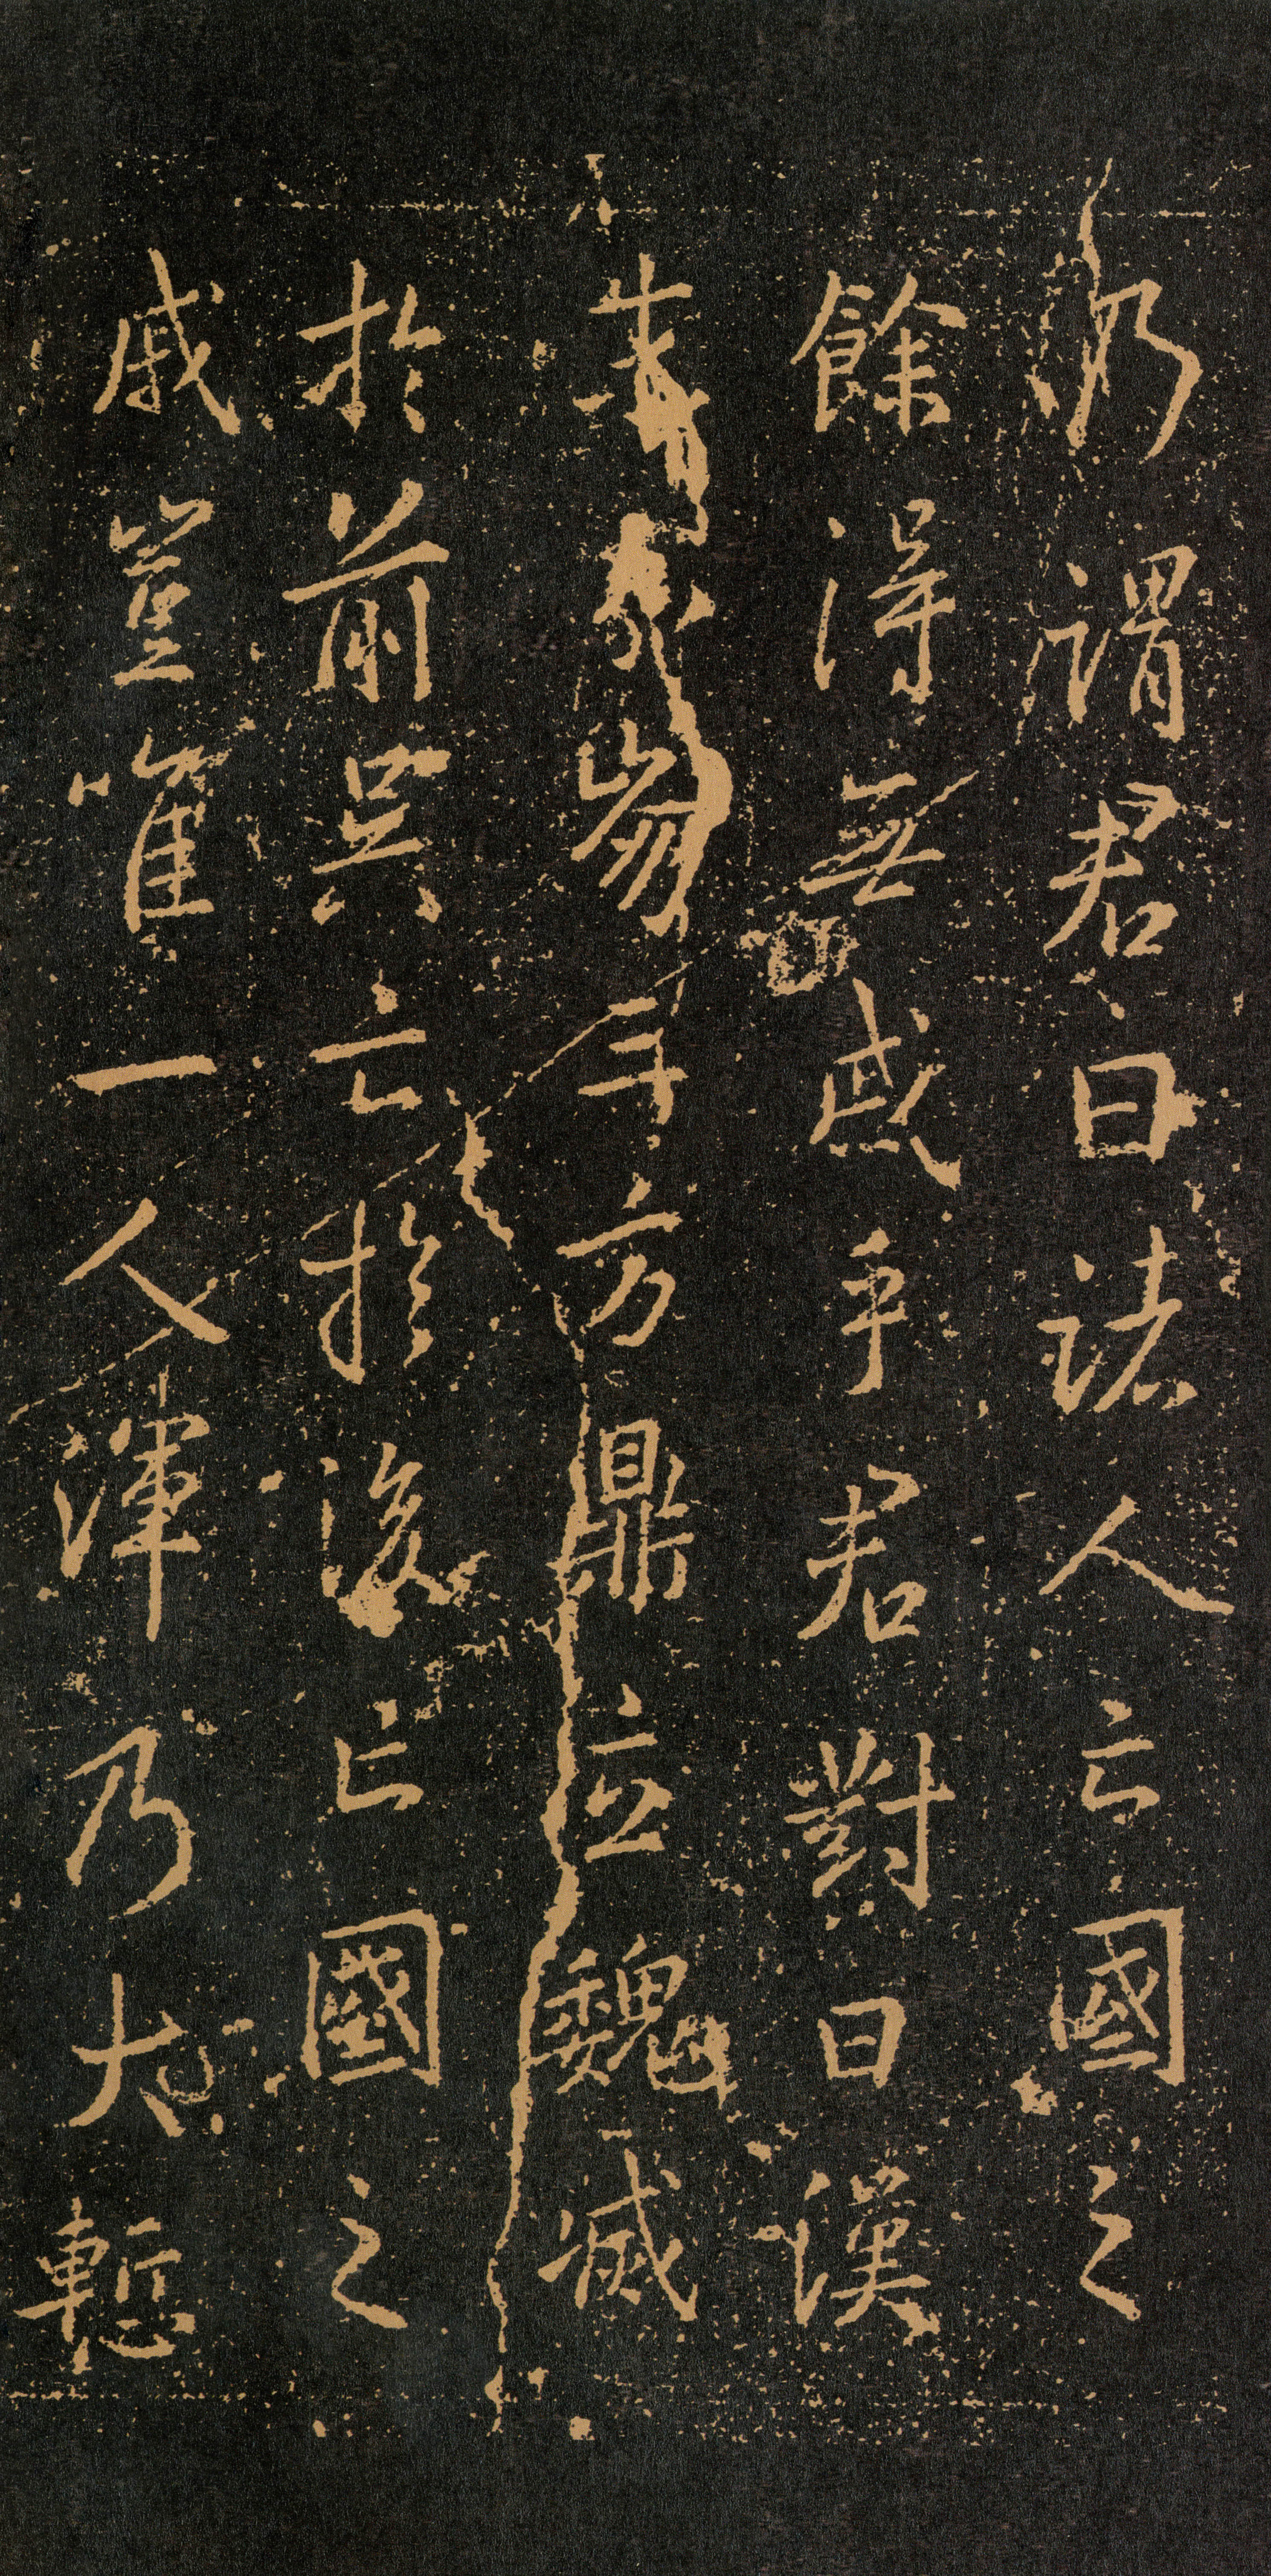 仍謂君曰諸人亡國之
餘得無慼乎君對曰漢
末分崩三方鼎立魏滅
於前吳亡於後亡國之
戚豈唯一人渾乃大慙